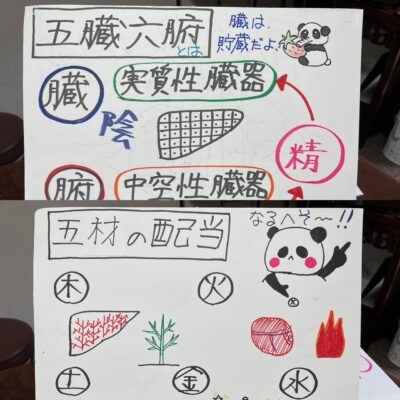 五臓六腑
とは
臓は、
貯蔵だよ!
臓
実質性臓器
陰
精
腑
中空性臓器
五材の配当
なるへそ~!!
木
火
土
金
水